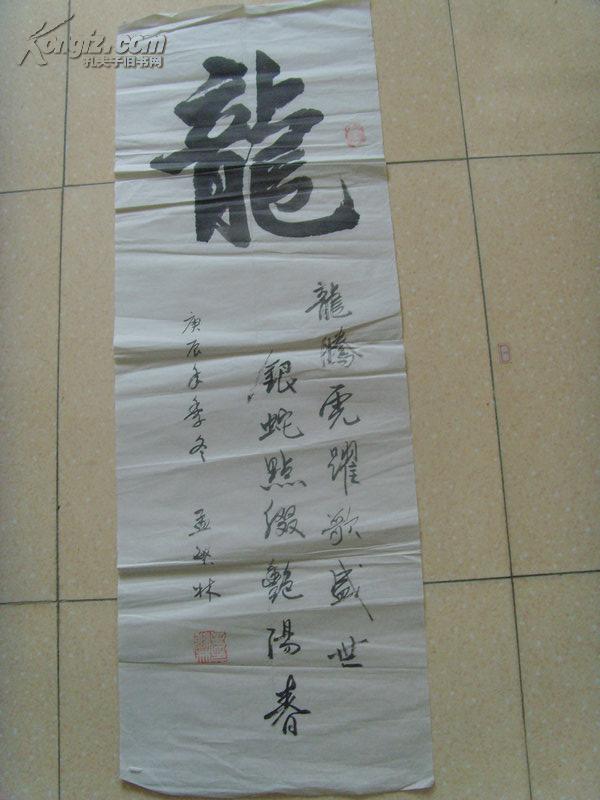 Kongfz.com
孔夫子旧书网
龍
龍騰虎躍歌盛世
銀蛇點缀艶陽春
庚辰年季冬
孟繁林